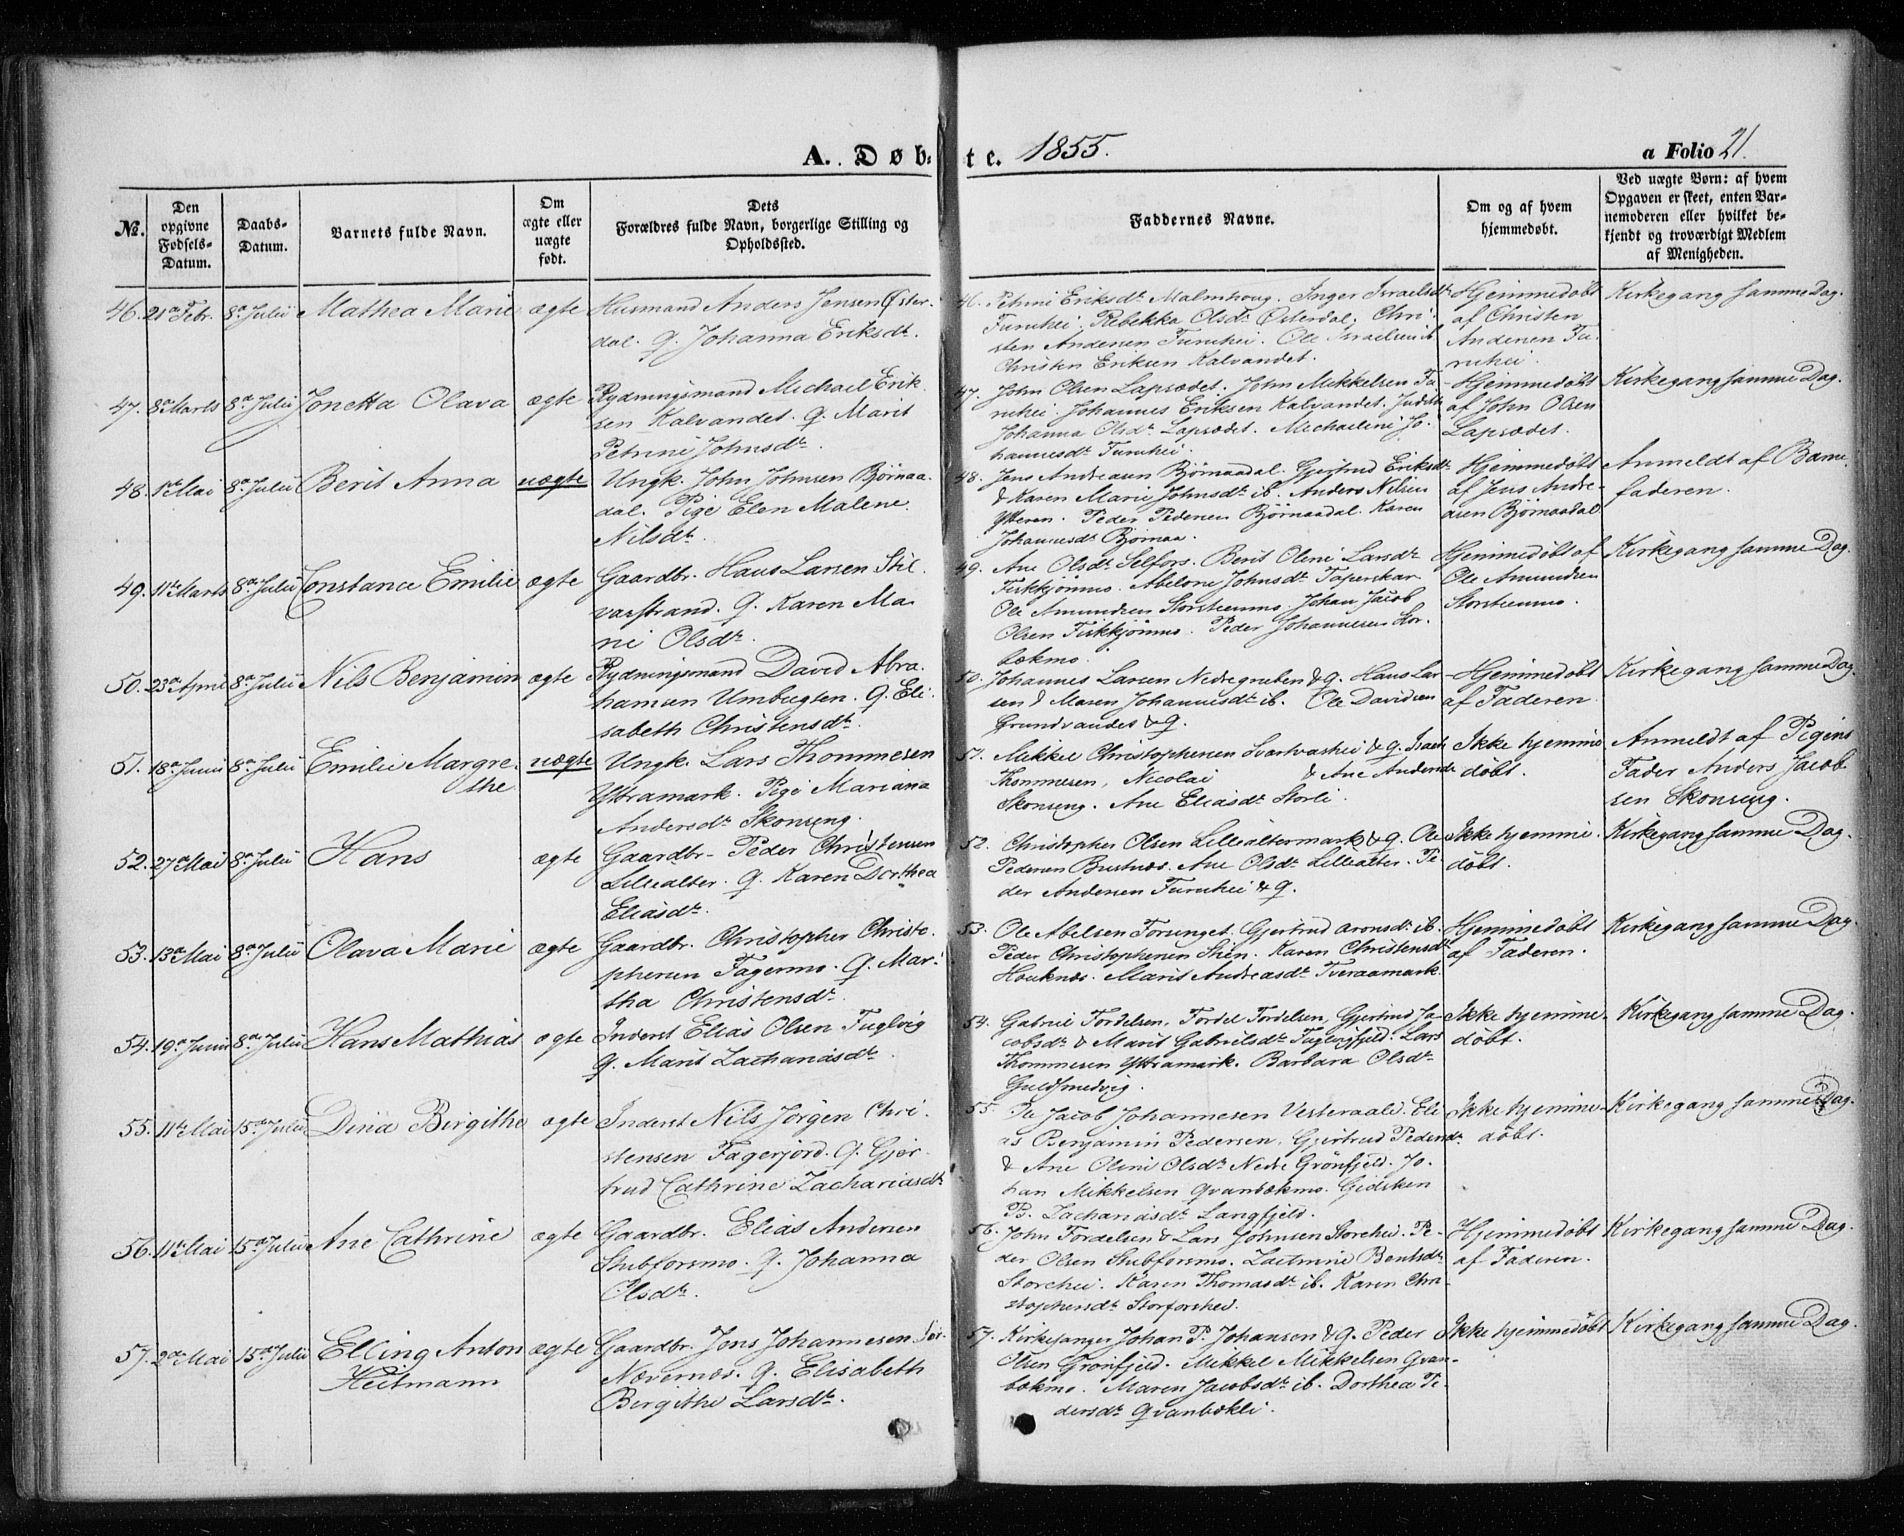 A. Døb- te. 1855. a Folio 21.
№.
Den opgivne Fødsels-Datum.
Daabs-Datum.
Barnets fulde Navn.
Om ægte eller uægte født.
Dets Forældres fulde Navn, borgerlige Stilling og Opholdssted.
Faddernes Navne.
Om og af hvem hjemmedøbt.
Ved uægte Børn: af hvem Opgaven er skeet, enten Barnemoderen eller hvilket bekjendt og troværdigt Medlem af Menigheden.
46. 21de Febr. 8de Julii Mathea Marie ægte Husmand Anders Jensen Øster-
dal. G. Johanna Eriksdt.
46. Petrine Eriksdt Malmhoug. Inger Israelsdt
Furuhei. Rebekka Olsdt Østerdal. Chri-
sten Andersen Furuhei. Ole Israelsen ib.
Christen Eriksen Kalvandet.
Hjemmedøbt
af Christen
Andersen Fu-
ruhei.
Kirkegang samme Dag.
47. 8de Marts 8de Julii Jonetta Olava ægte Rydningsmand Michael Erik-
sen Kalvandet. G. Marit
Petrine Johnsdt.
47. John Olsen Lapsædet. John Mikkelsen Fu-
ruhei. Johannes Eriksen Kalvandet. Judith
Johanna Olsdt Lapsædet. Michaeline Jo-
hannesdt Furuhei.
Hjemmedøbt
af John Olsen
Lapsædet.
Kirkegang samme Dag.
48. 1ste Mai 8de Julii Berit Anna uægte Ungk. John Johnsen Bjørnaa-
dal. Pige Elen Malene
Nilsdt.
48. Jens Andreasen Bjørnaadal. Gjertrud Eriksdt
& Karen Marie Johnsdt ib. Anders Nilsen
Ytteren. Peder Pedersen Bjørnaadal. Karen
Johannesdt Bjørnaa.
Hjemmedøbt
af Jens Andre-
asen Bjørnaadal
Anmeldt af Barne-
faderen.
49. 11te Marts 8de Julii Constance Emilie ægte Gaardbr. Hans Larsen Stil-
varstrand. G. Karen Ma-
rie Olsdt.
49. Ane Olsdt Selfors. Berit Oline Larsdt
Fiskkjønmo. Abelone Johnsdt Taperskar
Ole Amundsen Storsteenmo. Johan Jacob
Olsen Fiskkjønmo. Peder Johannesen Stor-
bækmo.
Hjemmedøbt af
Ole Amundsen
Storsteenmo.
Kirkegang samme Dag.
50. 23de April 8de Julii Nils Benjamin ægte Rydningsmand David Abra-
hamsen Umbugten. G. Eli-
sabeth Christensdt.
50. Johannes Larsen Nedregruben & G. Hans Lar-
sen & Maren Johannesdt ib. Ole Davidsen
Grundvandet & G.
Hjemmedøbt
af Faderen
Kirkegang samme Dag.
51. 18de Junii 8de Julii Emilie Margre-
the uægte Ungk. Lars Thommesen
Yttramark. Pige Mariana
Andersdt Skonseng.
51. Mikkel Christophersen Svartvashei & G. Isach
Thommesen, Nicolai & Ane Andersdt
Skonseng. Ane Eliasdt Storli.
Ikke hjemme-
døbt.
Anmeldt af Pigens
Fader Anders Jacob-
sen Skonseng.
52. 27de Mai 8de Julii Hans ægte Gaardbr. Peder Christensen
Lillealter. G. Karen Dorthea
Eliasdt.
52. Christopher Olsen Lillealtermark & G. Ole
Pedersen Bustnæs. Ane Olsdt Lillealter. Pe-
der Andersen Furuhei & G.
Ikke hjemme-
døbt.
Kirkegang samme Dag.
53. 13de Mai 8de Julii Olava Marie ægte Gaardbr. Christopher Christo-
phersen Fagermo. G. Mar-
tha Christensdt.
53. Ole Abelsen Forsinget. Gjertrud Aronsdt ib.
Peder Christophersen Stien. Karen Christensdt
Houknæs. Marit Andreasdt Tveraamark.
Hjemmedøbt
af Faderen.
Kirkegang samme Dag.
54. 19de Junii 8de Julii Hans Mathias ægte Inderst Elias Olsen Fuglvig
G. Marit Zachariasdt.
54. Gabriel Fordelsen, Fordel Fordelsen, Gjertrud Ja-
cobsdt & Marit Gabrielsdt Fuglvigfjeld. Lars
Thommesen Yttramark. Barbara Olsdt
Guldsmedvig.
Ikke hjemme-
døbt.
Kirkegang samme Dag.
55. 11te Mai 15de Julii Dina Birgithe ægte Inderst Nils Jørgen Chri-
stensen Fagerjord. G. Gjer-
trud Cathrine Zachariasdt
55. Pe Jacob Johannesen Vesteraali. Eli-
as Benjamin Pedersen, Gjertrud Pedersdt
& Ane Oline Olsdt Nedre Grønfjeld. Jo-
han Mikkelsen Qvanbækmo. Gidsken
B. Zachariasdt Langfjeld.
Ikke hjemme-
døbt.
Kirkegang samme Dag.
56. 11te Mai 15de Julii Ane Cathrine ægte Gaardbr. Elias Andersen
Stubforsmo. G. Johanna
Olsdt.
56. John Fordelsen & Lars Johnsen Storehei. Pe-
der Olsen Stubforsmo. Zaetmine Bentsdt
Storehei. Karen Thomasdt ib. Karen Chri-
stophersdt Storforshei.
Hjemmedøbt
af Faderen.
Kirkegang samme Dag.
57. 2den Mai 15de Julii Elling Anton
Heitmann ægte Gaardbr. Jens Johannesen Sør-
Nævernæs. G. Elisabeth
Birgithe Larsdt.
57. Kirkesanger Johan P. Johansen & G. Peder
Olsen Grønfjeld. Mikkel Mikkelsen Qvan-
bækmo. Maren Jacobsdt ib. Dorthea Pe-
dersdt Qvanbækli.
Ikke hjemmedøbt
Kirkegang samme Dag.